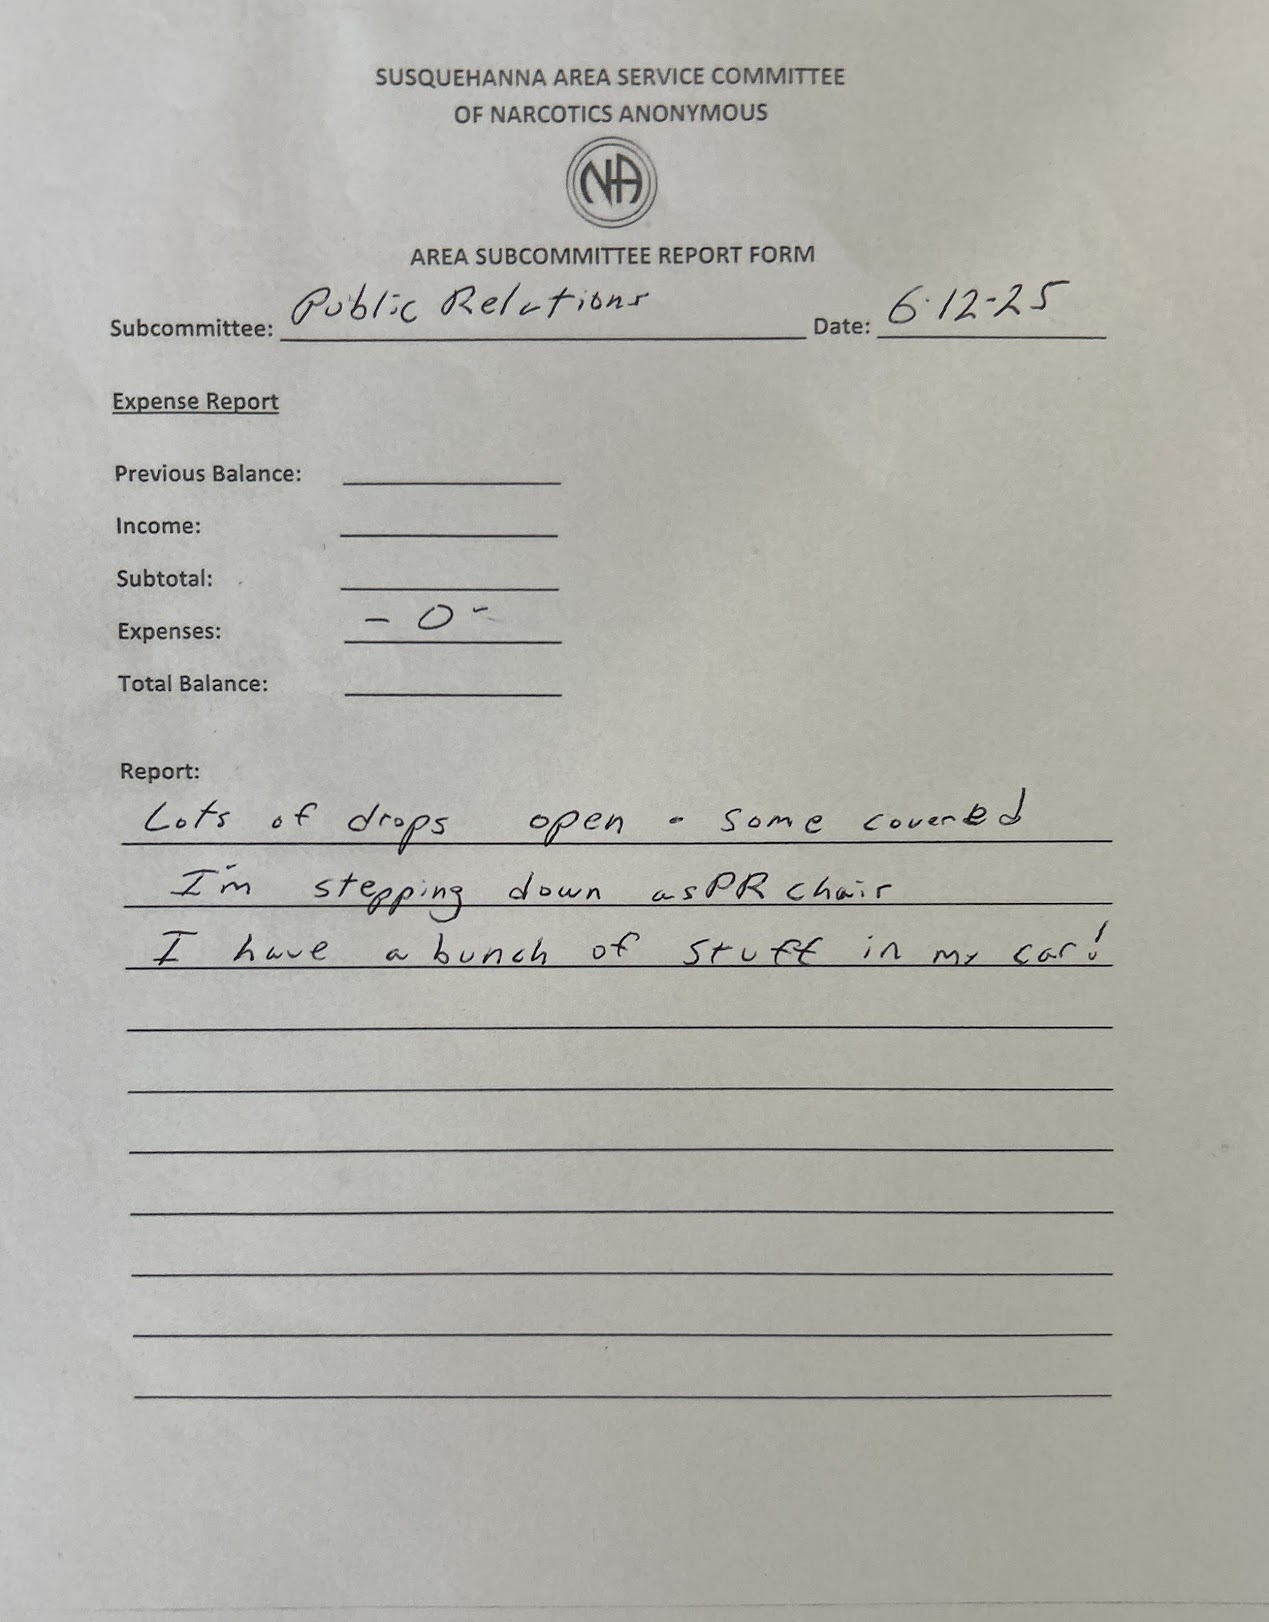 SUSQUEHANNA AREA SERVICE COMMITTEE
OF NARCOTICS ANONYMOUS
NA
AREA SUBCOMMITTEE REPORT FORM
Subcommittee: Public Relations Date: 6-12-25
Expense Report
Previous Balance:
Income:
Subtotal:
Expenses: - 0 -
Total Balance:
Report:
Lots of drops open - some covered
I'm stepping down as PR chair
I have a bunch of stuff in my car!